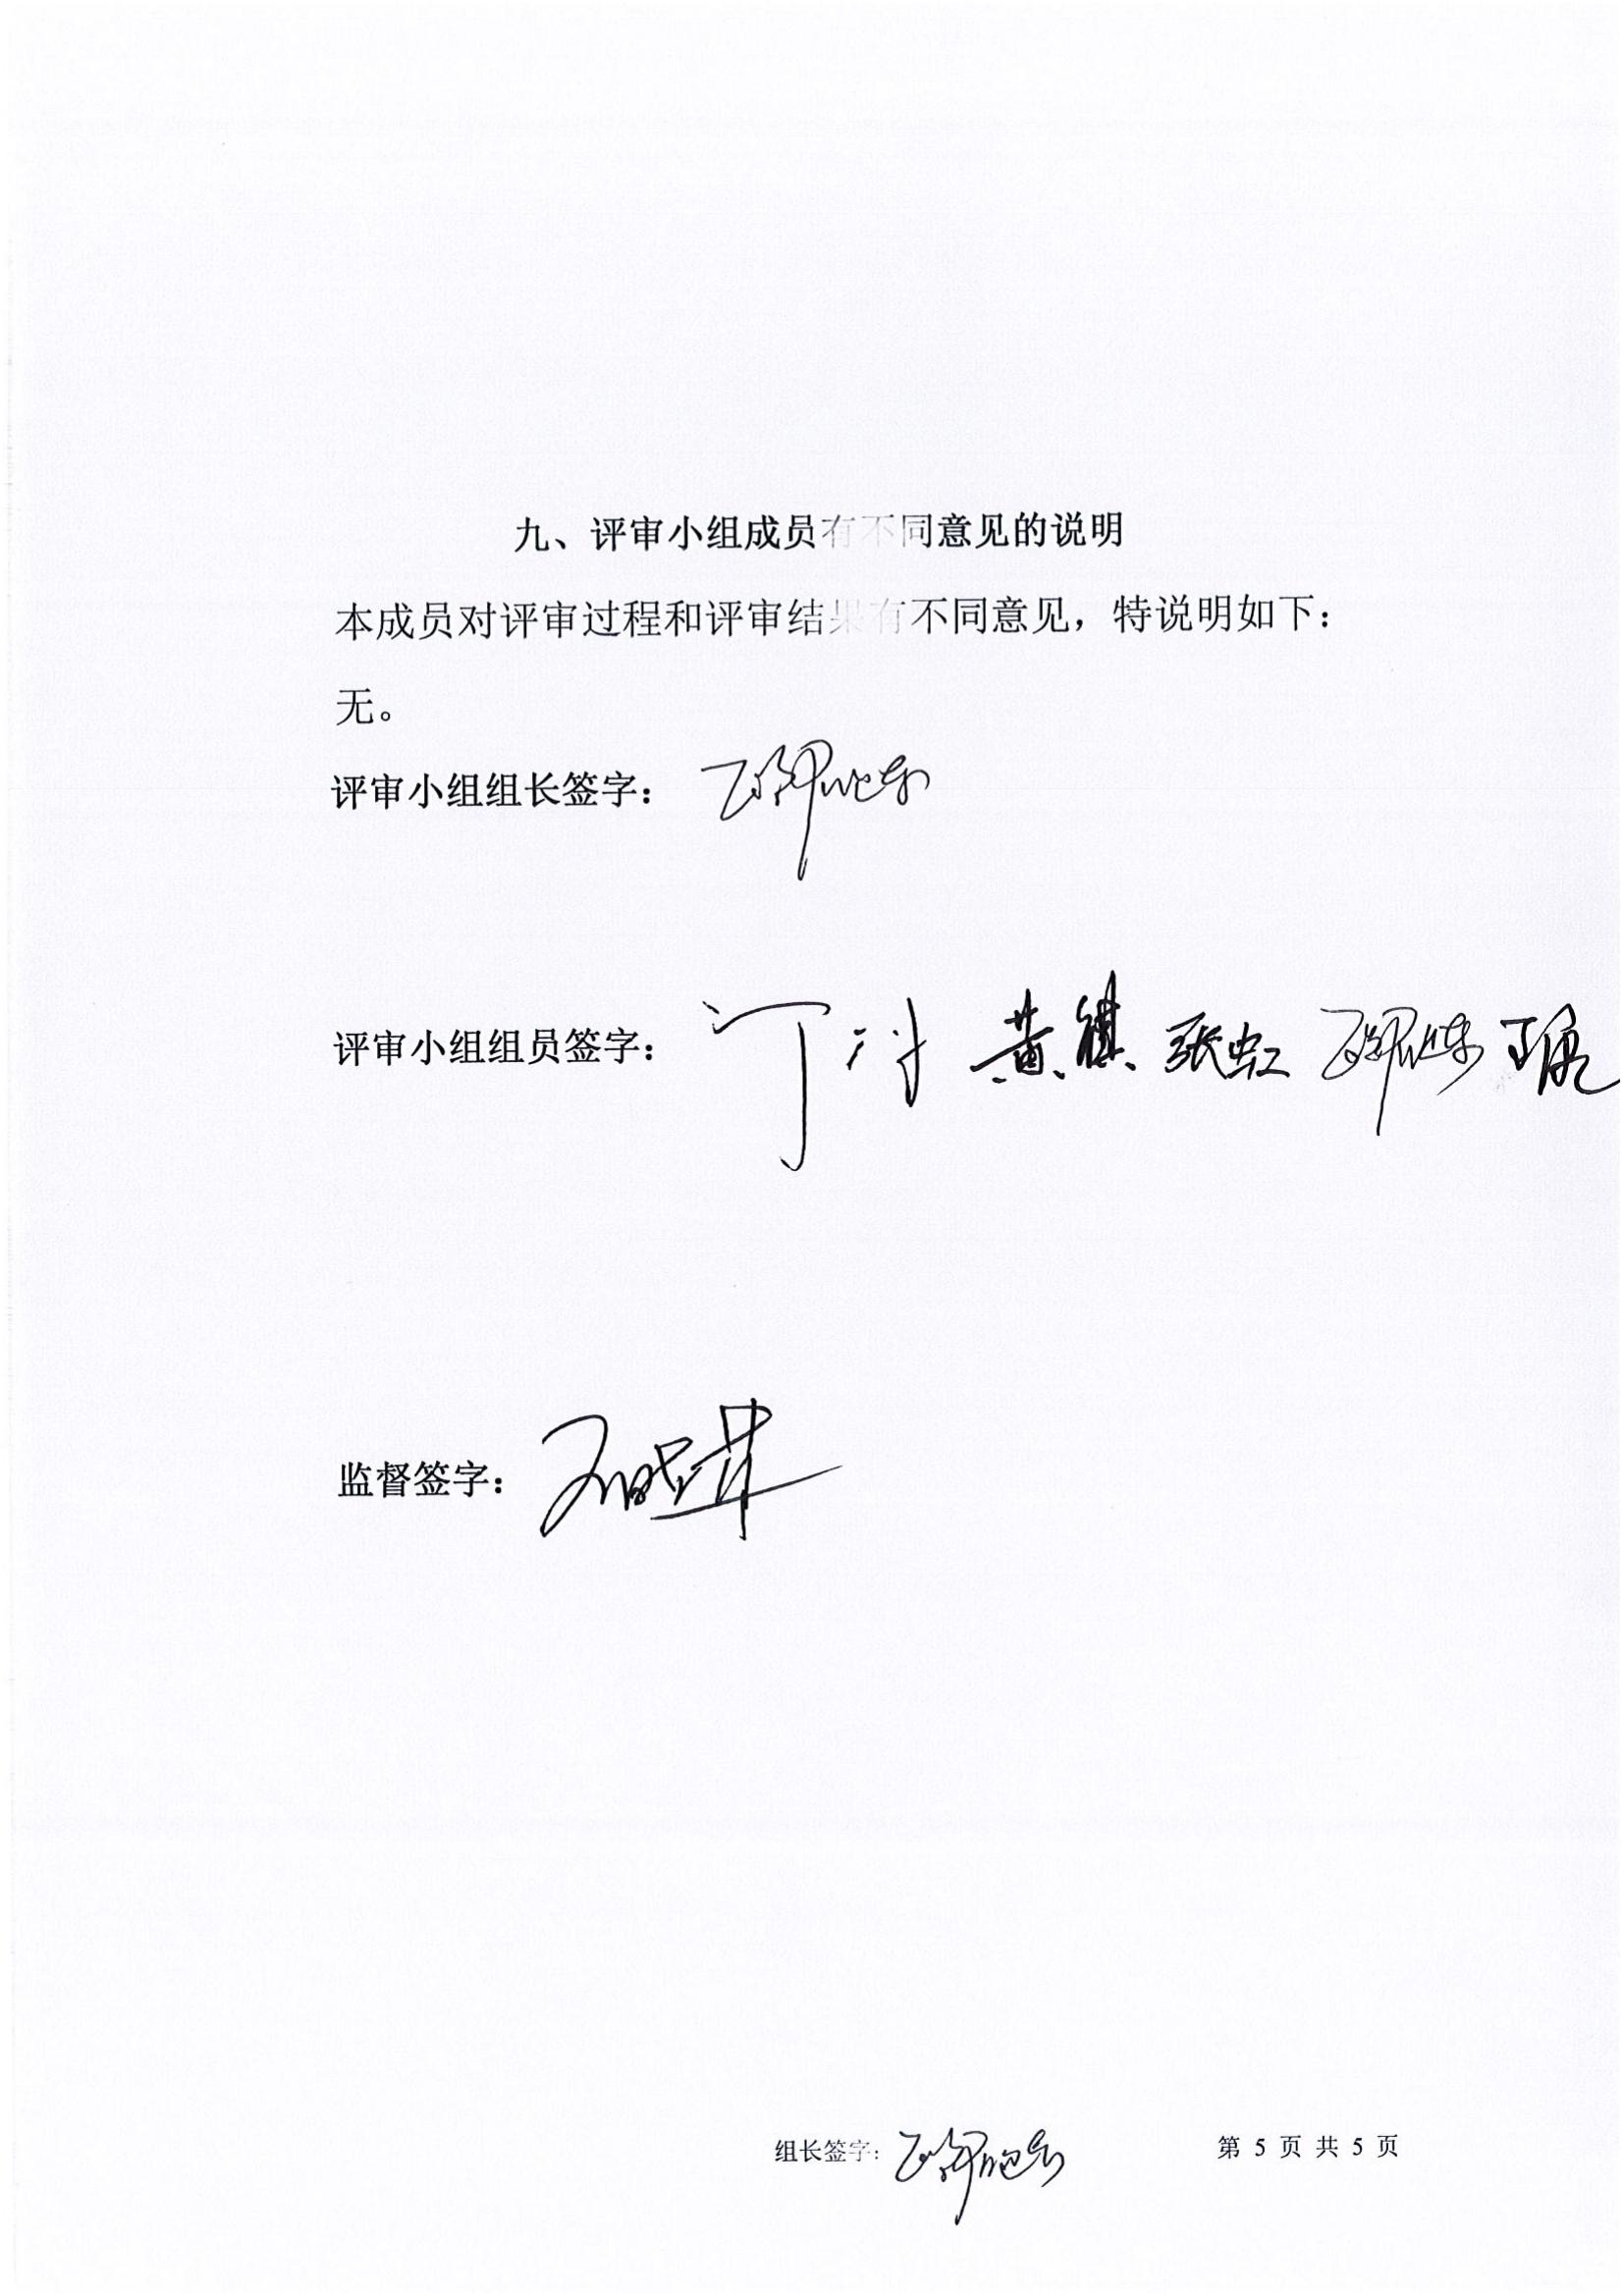 九、评审小组成员有不同意见的说明
本成员对评审过程和评审结果有不同意见，特说明如下：
无。
评审小组组长签字：
评审小组组员签字： 黄祺 张虹
监督签字：
组长签字： 第 5 页 共 5 页